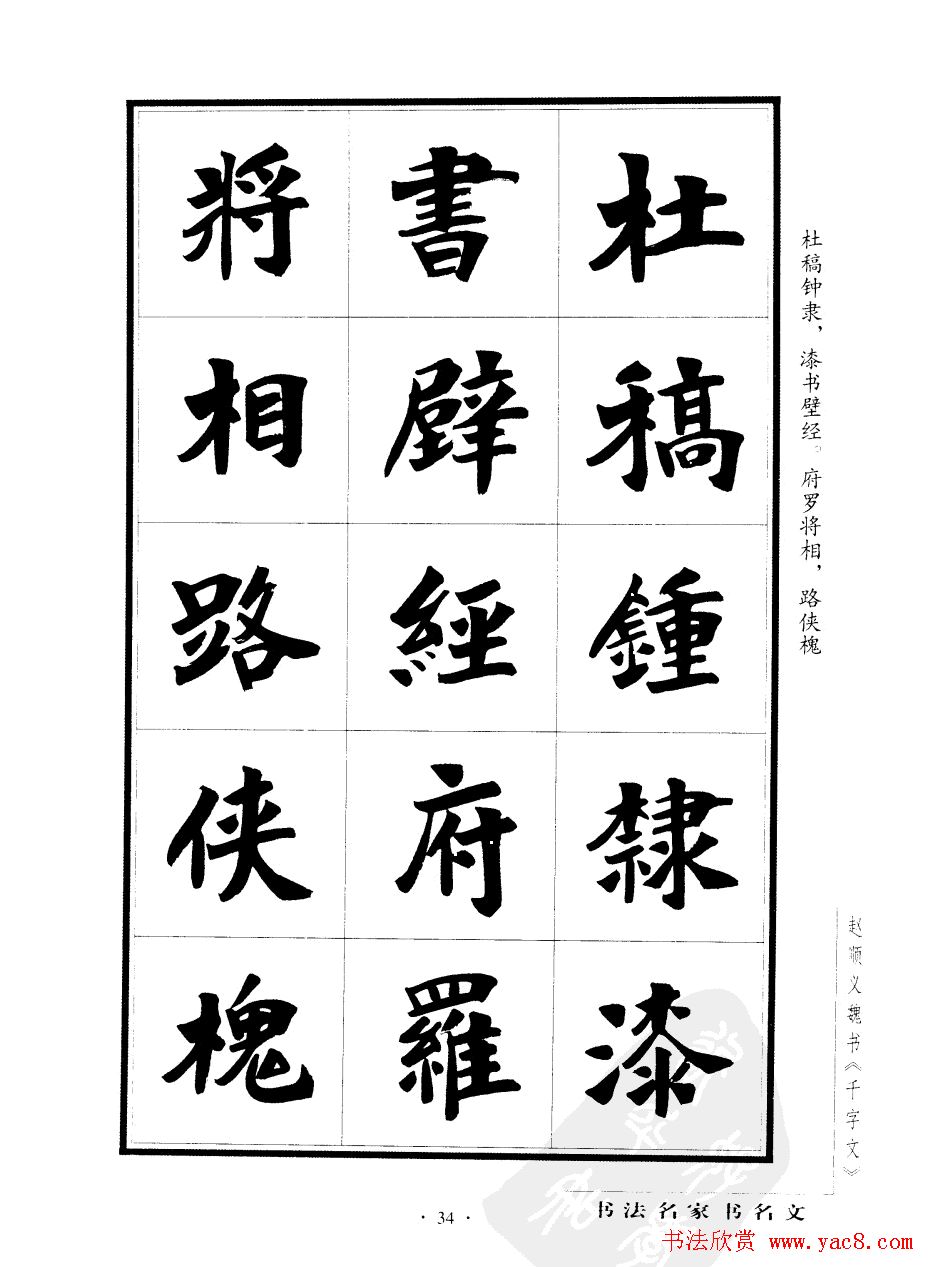 杜稿鍾隷漆
書壁經府羅
將相路侠槐
杜稿钟隶，漆书壁经。府罗将相，路侠槐
赵顺义魏书《千字文》
·34·
书法名家书名文
书法欣赏 www.yac8.com